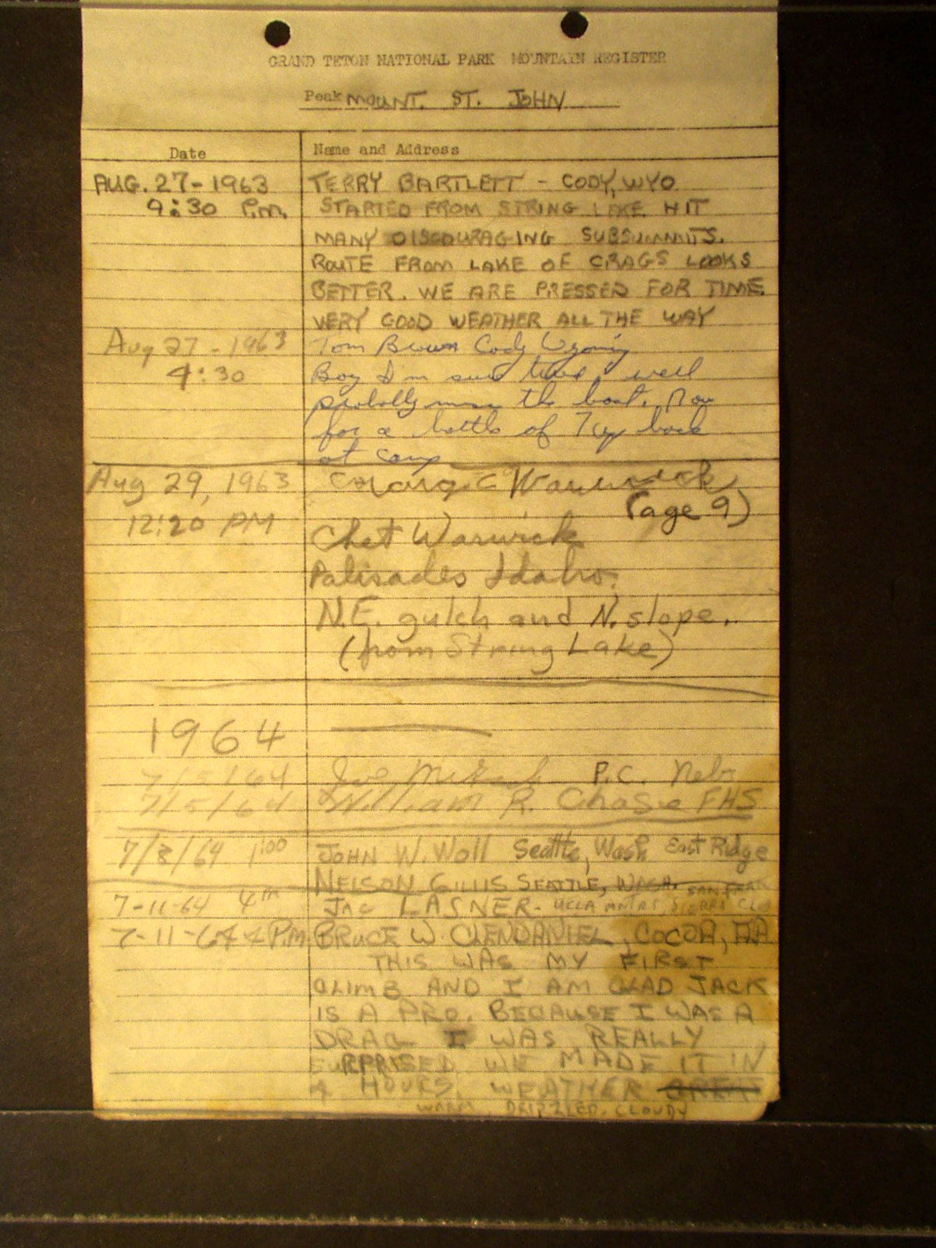 GRAND TETON NATIONAL PARK MOUNTAIN REGISTER
Peak MOUNT. ST. JOHN
Date Name and Address
AUG. 27-1963 TERRY BARTLETT - CODY, WYO.
9:30 P.m. STARTED FROM STRING LAKE HIT
MANY DISCOURAGING SUBSUMMITS.
ROUTE FROM LAKE OF CRAGS LOOKS
BETTER. WE ARE PRESSED FOR TIME.
VERY GOOD WEATHER ALL THE WAY
Aug 27-1963 Tom Brown Cody Wyoming
4:30 Boy I'm sure tired, well
probably miss the boat. Now
for a bottle of 7up back
at camp
Aug 29, 1963 Warwick
(age 9)
12:20 PM Chet Warwick
Palisades Idaho.
N.E. gulch and N. slope.
(from String Lake)
1964
7/5/64 Joe P.C. Nebr
7/5/64 William R. Chase FHS
7/3/64 1:00 JOHN W. Woll Seattle, Wash East Ridge
NELSON GILLIS SEATTLE, WASH.
7-11-64 4pm JAC LASNER - UCLA MNTRS, SIERRA CLUB SAN FRAN
7-11-64 4 P.m. BRUCE W CLENDANIEL, COCOA, FLA
THIS WAS MY FIRST
CLIMB AND I AM GLAD JACK
IS A PRO. BECAUSE I WAS A
DRAG I WAS REALLY
SURPRISED WE MADE IT IN
4 HOURS. WEATHER
WARM, DRIZZLED, CLOUDY